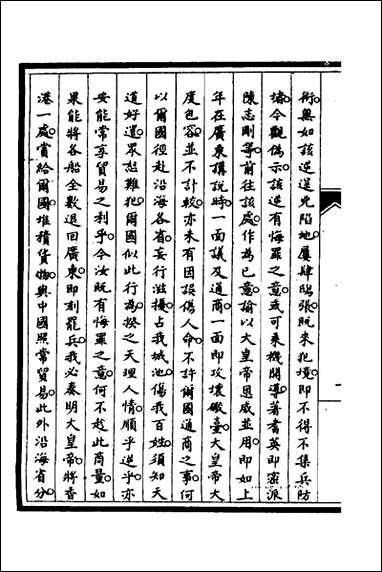 術無如該逆逆先陷地屢肆鴟張既來犯境即不得不集兵防
堵今觀偽示該逆有悔罪之意或可乘機開導著耆英即密派
陳志剛等前往該處作為己意諭以大皇帝恩威並用即如上
年在廣東講說時一面議及通商一面即攻壞礮臺大皇帝大
度包容並不計較亦未有因誤傷人命不許爾國通商之事何
以爾國徑赴沿海各省妄行滋擾占我城池傷我百姓須知天
道好還眾怒難犯爾國似此行為揆之天理人情順乎逆乎亦
安能常享貿易之利乎今汝既有悔罪之意何不趁此商量如
果能將各船全數退回廣東即刻罷兵我必奏明大皇帝將香
港一處賞給爾國堆積貨物與中國照常貿易此外沿海省分